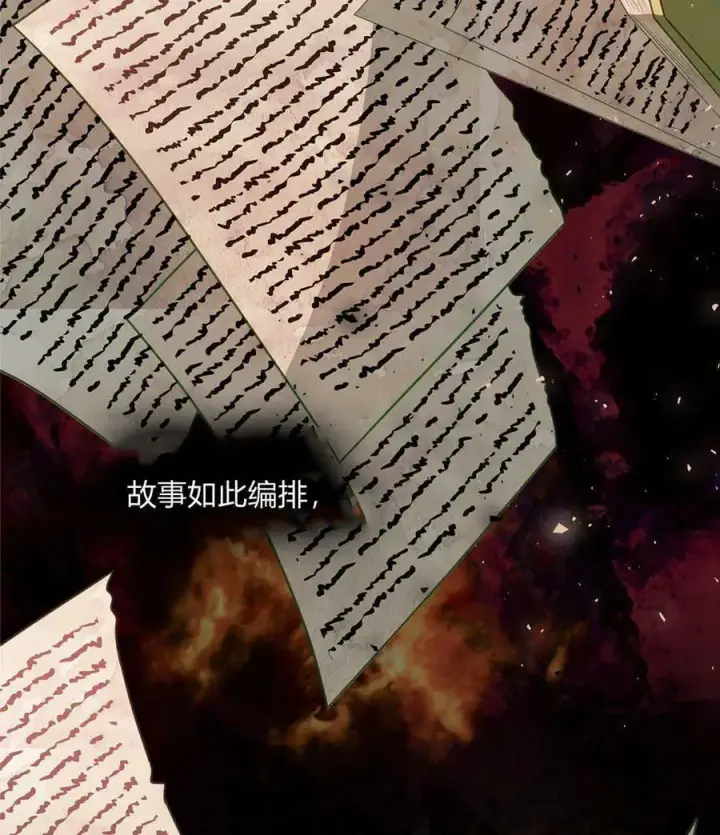 故事如此编排，